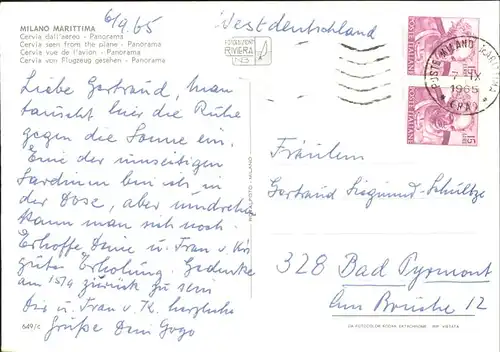 MILANO MARITTIMA
Cervia dall'aereo - Panorama
Cervia seen from the plane - Panorama
Cervia vue de l'avion - Panorama
Cervia von Flugzeug gesehen - Panorama
6/9.65
Westdeutschland
RIVIERA
POSTE MILANO MARITTIMA
7 - IX
1965
POSTE ITALIANE
POSTE ITALIANE
Liebe Gertraud, Man
tauscht hier die Ruhe
gegen die Sonne ein.
Eine der umseitigen
Sardinen bin ich in
der Dose, aber umdrehen
kann man sich noch.
Erhoffe Deine u. Frau v.
gute Erholung. Gedenke
am 15/9 zurück zu sein
Dir u. Frau v. K. herzliche
Grüße Dein Gogo
Fräulein
Gertraud Siegmund-Schultze
328 Bad Pyrmont
Am Bruche 12
649/c